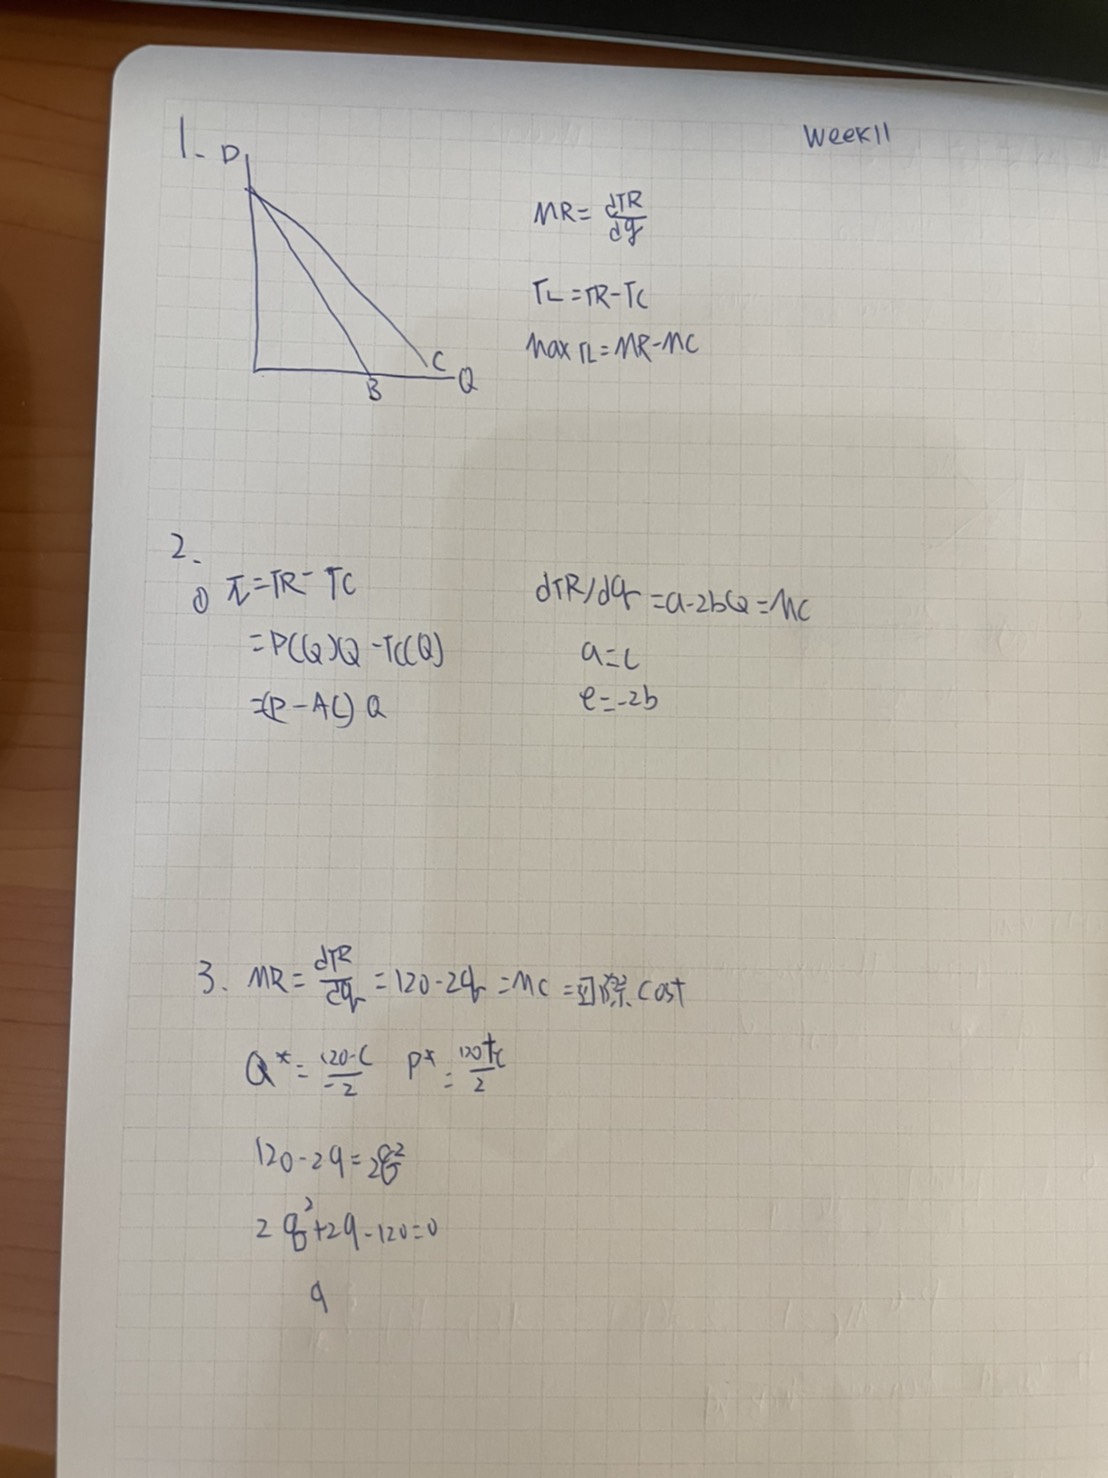 Week11
1-
P
C
B
Q
MR = dTR/dq
π = TR - TC
Max π = MR - MC
2-
① π = TR - TC
= P(Q)Q - TC(Q)
= (P - AC) Q
dTR/dq = a - 2bQ = MC
a = c
e = -2b
3. MR = dTR/dq = 120 - 2q = MC = 边際 cost
Q* = 120-C/-2 P* = 120+C/2
120 - 2q = 2q²
2q² + 2q - 120 = 0
q